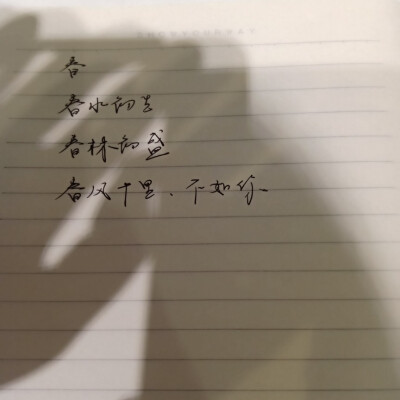 春
春水初生
春林初盛
春风十里、不如你